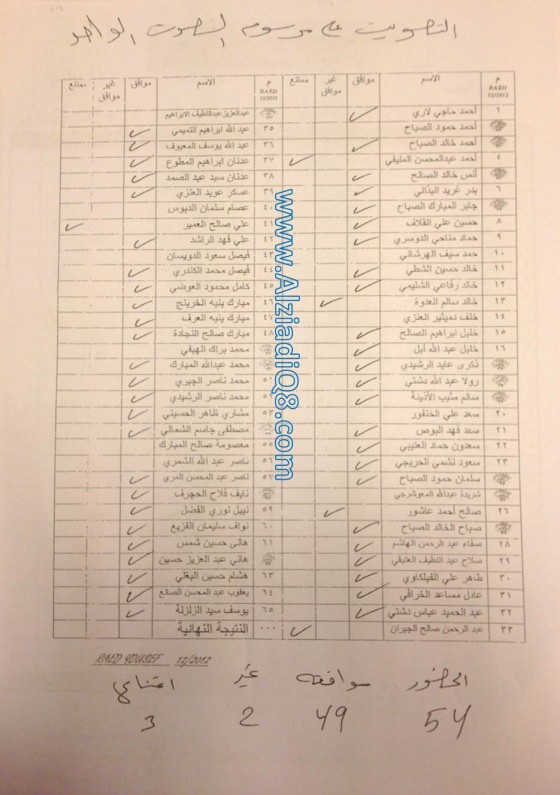 التصويت على مرسوم الصوت الواحد
م RAED 12/2012 الاسم موافق غير موافق ممتنع
١ أحمد حاجي لاري
أحمد حمود الصباح
أحمد خالد الصباح
٤ أحمد عبدالمحسن المليفي
أنس خالد الصالح
٦ بدر غريد البذالي
جابر المبارك الصباح
٨ حسين علي القلاف
٩ حماد مناحي الدوسري
١٠ حمد سيف الهرشاني
١١ خالد حسين الشطي
١٢ خالد رفاعي الشليمي
١٣ خالد سالم العدوة
١٤ خلف دميثير العنزي
١٥ خليل ابراهيم الصالح
١٦ خليل عبد الله أبل
ذكرى عايد الرشيدي
رولا عبد الله دشتي
سالم مثيب الأذينة
٢٠ سعد علي الخنفور
٢١ سعد فهد البوص
٢٢ سعدون حماد العتيبي
٢٣ سعود نشمي الحريجي
سلمان حمود الصباح
شريدة عبدالله المعوشرجي
٢٦ صالح أحمد عاشور
صباح الخالد الصباح
٢٨ صفاء عبد الرحمن الهاشم
٢٩ صلاح عبد اللطيف العتيقي
٣٠ طاهر علي الفيلكاوي
٣١ عادل مساعد الخرافي
٣٢ عبد الحميد عباس دشتي
٣٣ عبد الرحمن صالح الجيران
م RAED 12/2012 الاسم موافق غير موافق ممتنع
عبدالعزيز عبداللطيف الابراهيم
٣٥ عبد الله ابراهيم التميمي
٣٦ عبد الله يوسف المعيوف
٣٧ عدنان ابراهيم المطوع
٣٨ عدنان سيد عبد الصمد
٣٩ عسكر عويد العنزي
٤٠ عصام سلمان الدبوس
٤١ علي صالح العمير
٤٢ علي فهد الراشد
فيصل سعود الدويسان
٤٤ فيصل محمد الكندري
٤٥ كامل محمود العوضي
٤٦ مبارك بنيه الخرينج
مبارك بنيه العرف
٤٨ مبارك صالح النجادة
محمد براك الهيفي
محمد عبدالله المبارك
محمد ناصر الجبري
محمد ناصر الرشيدي
٥٣ مشاري ظاهر الحسيني
مصطفى جاسم الشمالي
٥٥ معصومة صالح المبارك
٥٦ ناصر عبد الله الشمري
٥٧ ناصر عبد المحسن المري
نايف فلاح الحجرف
٥٩ نبيل نوري الفضل
٦٠ نواف سليمان الفزيع
٦١ هاني حسين شمس
هاني عبد العزيز حسين
٦٣ هشام حسين البغلي
٦٤ يعقوب عبد المحسن الصانع
٦٥ يوسف سيد الزلزلة
٠٠٠ النتيجة النهائية
www.AlziadiQ8.com
RAED YOUSEF 12/2012
الحضور موافقه غير امتناع
54 49 2 3